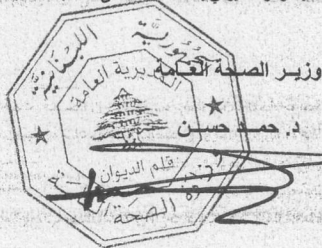 وزير الصحة العامة
د. حمد حسن
الجمهورية اللبنانية
المديرية العامة
قلم الديوان
وزارة الصحة